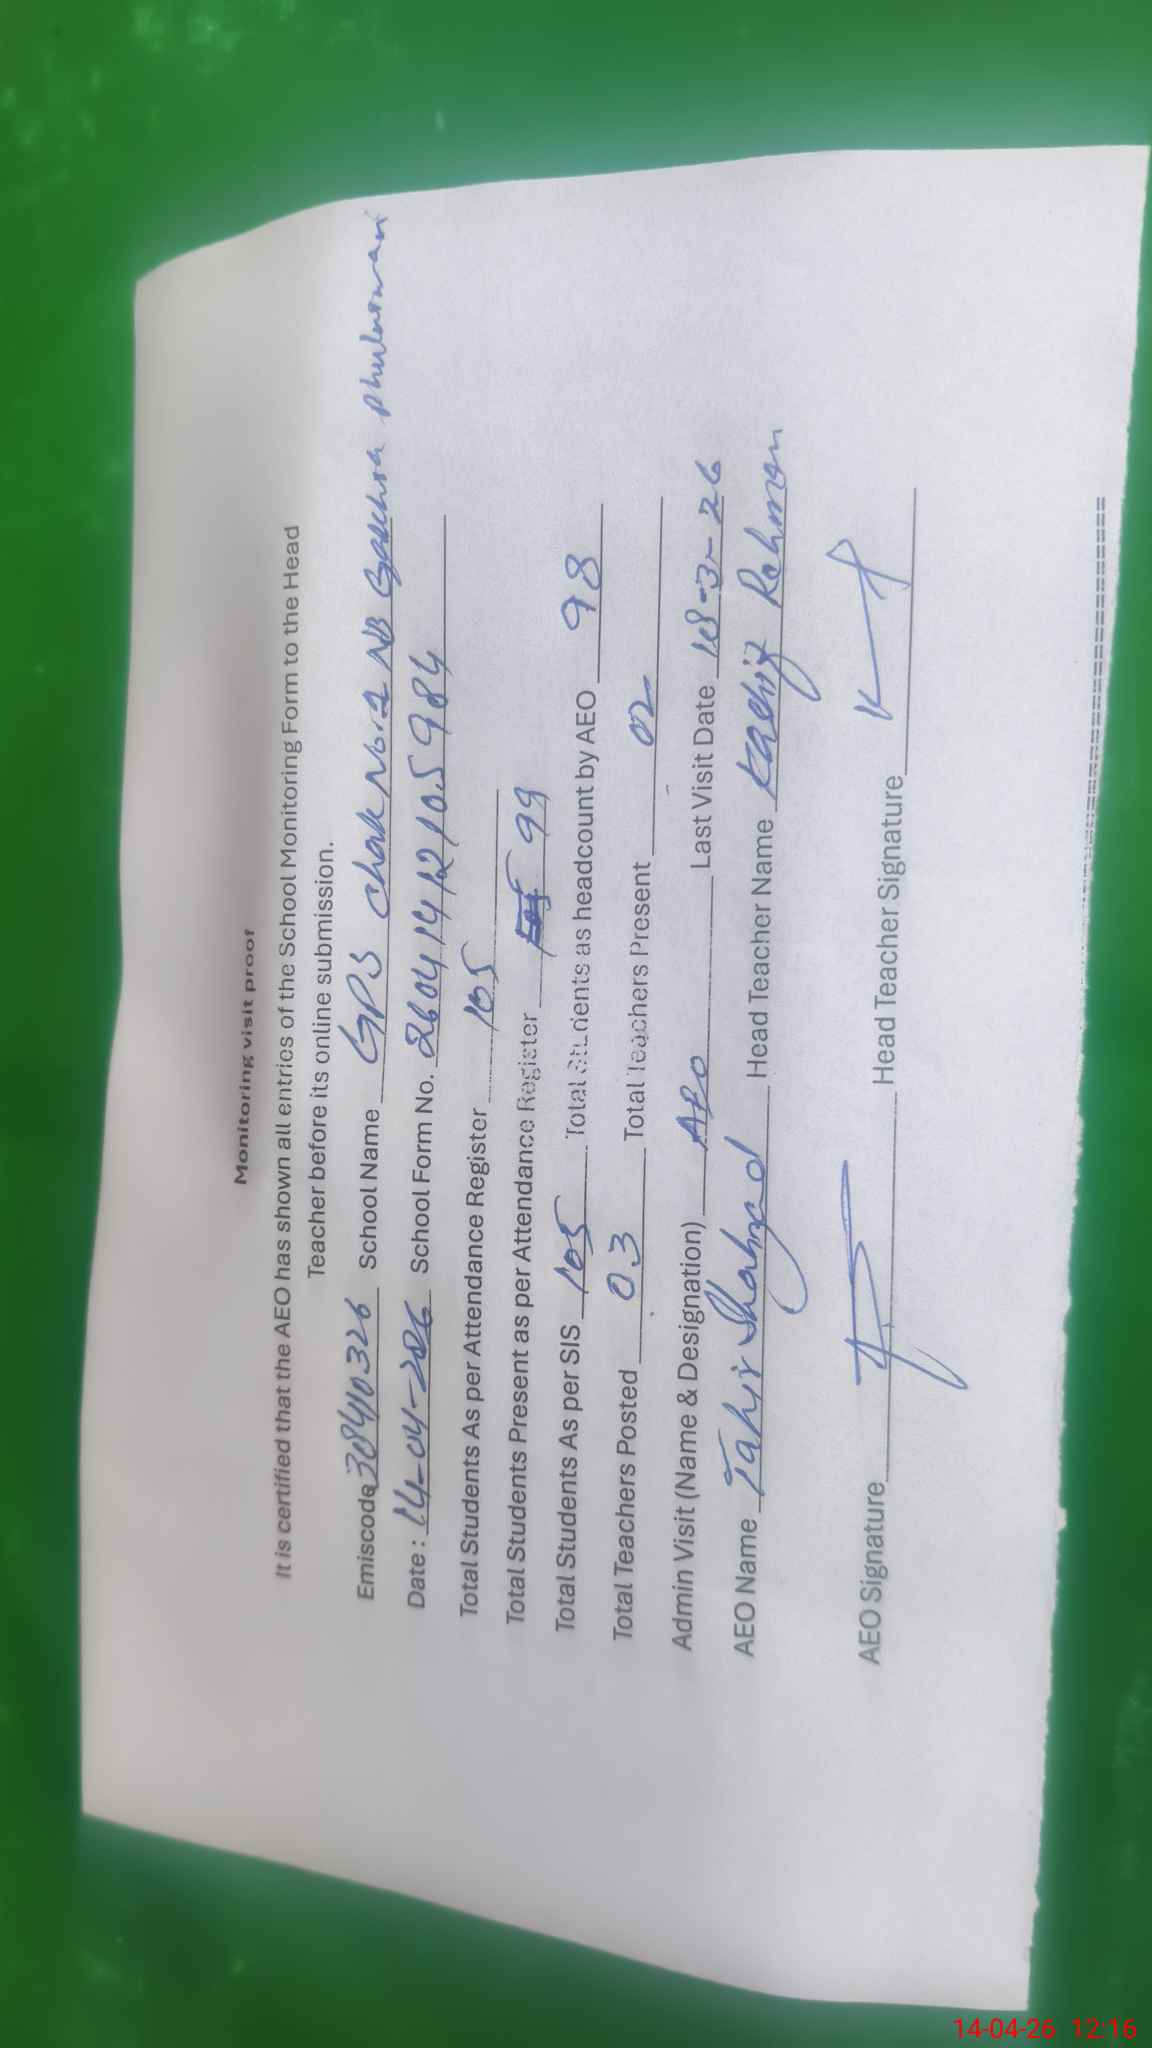 Monitoring visit proof
It is certified that the AEO has shown all entries of the School Monitoring Form to the Head
Teacher before its online submission.
Emiscode 38410326 School Name GPS Chak No. 1 NB
Date: 14-04-2026 School Form No. 26041412105984
Total Students As per Attendance Register 105
Total Students Present as per Attendance Register 99
Total Students As per SIS 105 Total Students as headcount by AEO 98
Total Teachers Posted 03 Total Teachers Present 02
Admin Visit (Name & Designation) AEO Last Visit Date 18-3-26
AEO Name Tahir Shahzad Head Teacher Name Kashif Rehman
AEO Signature Head Teacher Signature
14-04-26 12:16